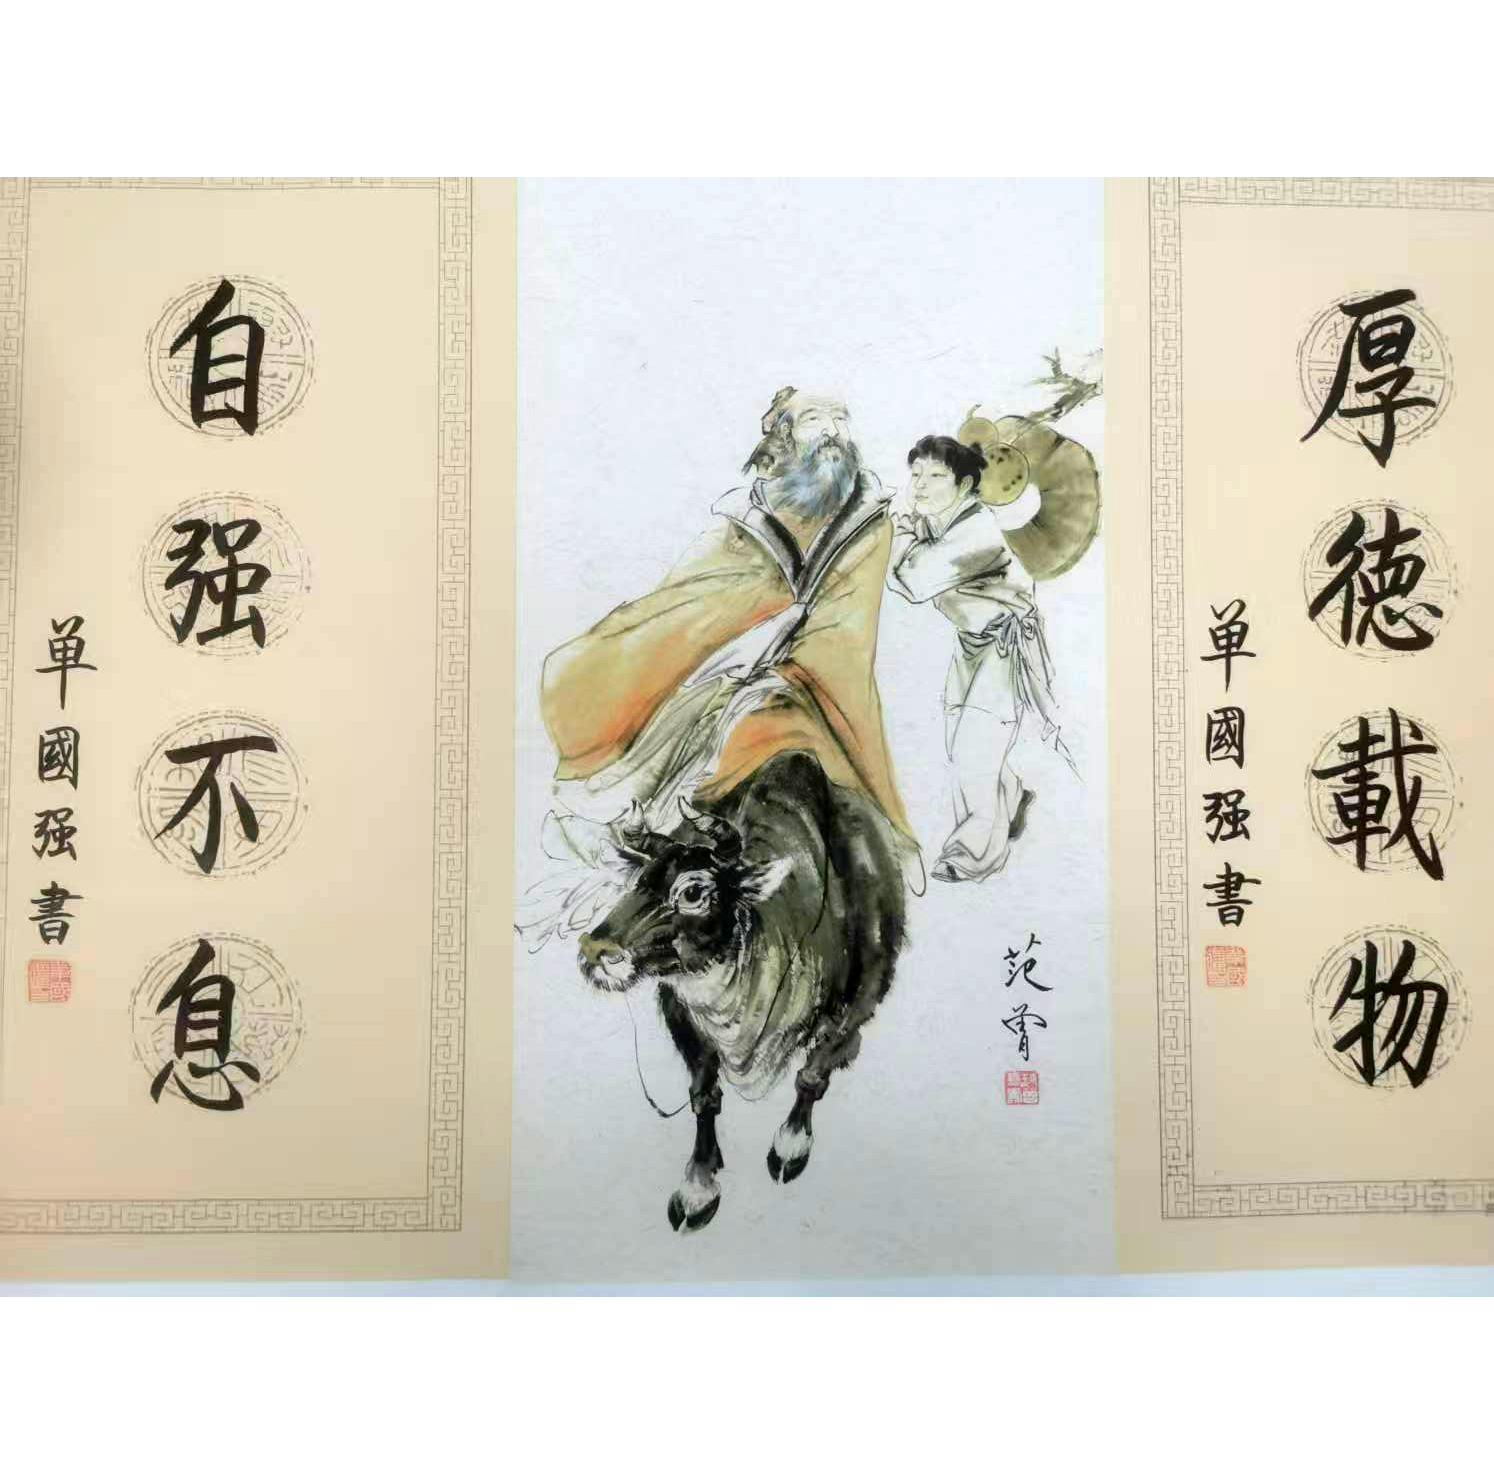 厚德載物
单國强書
范曾
自强不息
单國强書